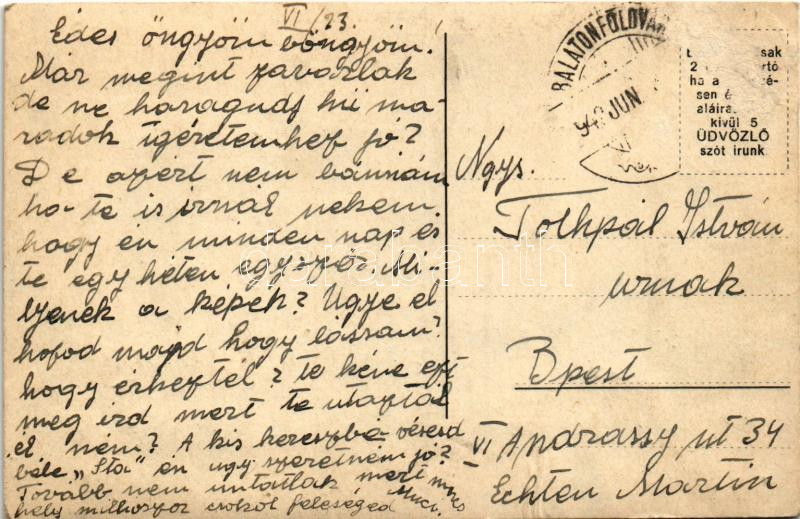 VI/23.
Édes öngyöm böngyöm!
Már megint zavarlak
de ne haragudj hü ma-
radok igéretemhez jó?
De azért nem bánnám
ha te is irnál nekem.
hogy én minden nap és
te egy héten egyszer. Mi-
lyenek a képek? Ugye el
hozod majd hogy lássam?
hogy érkeztél? te kéne ezt
meg ird mert te utaztál
el nem? A kis keresztbe vésesd
bele "Sta" én ugy szeretném jó?
Tovább nem untatlak mert nincs
hely milliószor csókol feleséged Muci.
BALATONFÖLDVÁR
942 JUN.
2
ha a
sen é
aláírá
kívül 5
ÜDVÖZLŐ
szót írunk.
Ngys.
Tolhpál István
urnak
Bpest
VI Andrassy ut 34
Echten Martin
darabanth